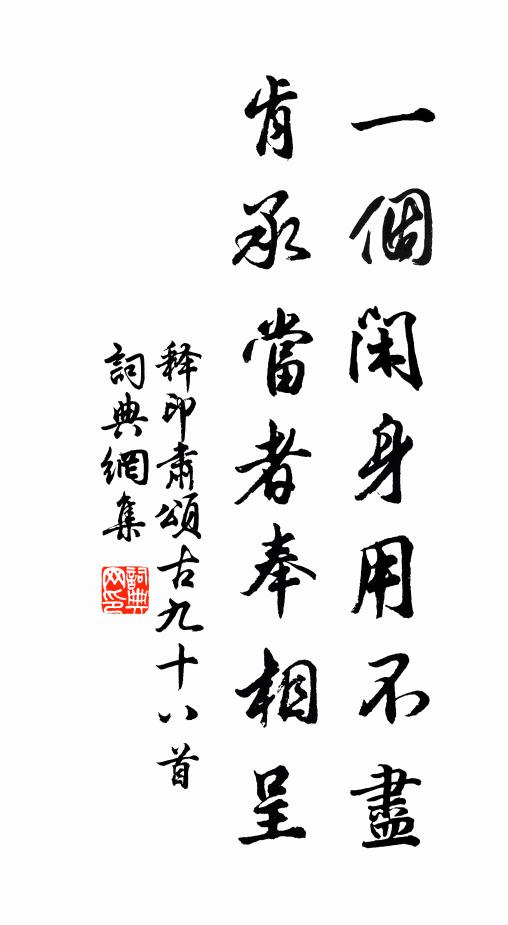 一個閑身用不盡
肯承當者奉相呈
釋印肅頌古九十八首
詞典網集
詞典網印